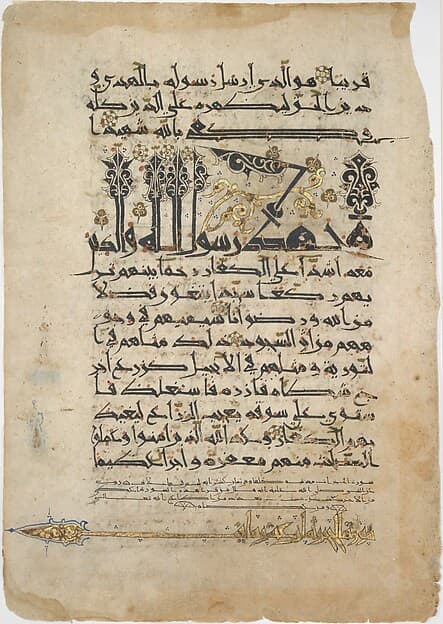 قريبا هو الذي ارسل رسوله بالهدى و
دين الحق ليظهره على الدين كله
وكفى بالله شهيدا
محمد رسول الله والذين
معه اشدا على الكفار رحما بينهم تر
يهم ركعا سجدا يبتغون فضلا
من الله ورضوانا سيماهم في وجو
ههم من اثر السجود ذلك مثلهم في ا
لتورية ومثلهم في الانجيل كزرع اخر
ج شطاه فازره فاستغلظ فا
ستوى على سوقه يعجب الزراع ليغيظ
بهم الكفار وعد الله الذين امنوا وعملوا
الصلحت منهم مغفرة واجرا عظيما
سورة الحجرات